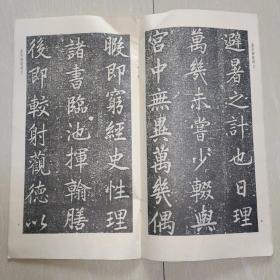 避暑之計也日理
萬幾未嘗少輟與
宮中無異萬幾偶
暇即窮經史性理
諸書臨池揮翰膳
後即較射觀德以